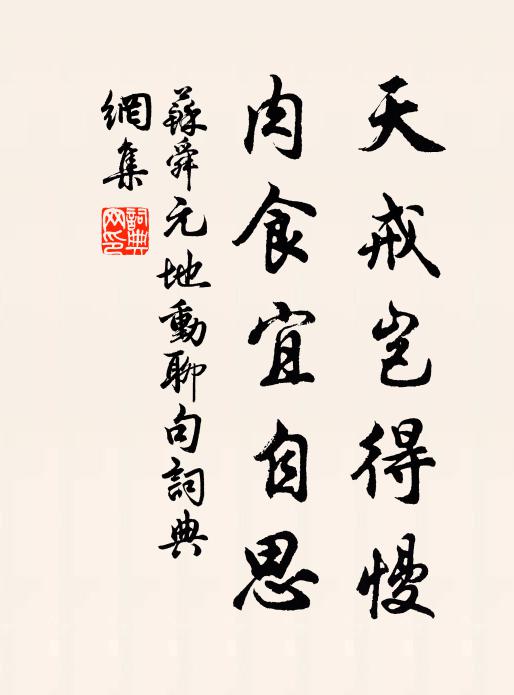 天戒岂得慢
肉食宜自思
蘇舜元地動聊句詞典
網集
詞典
网印